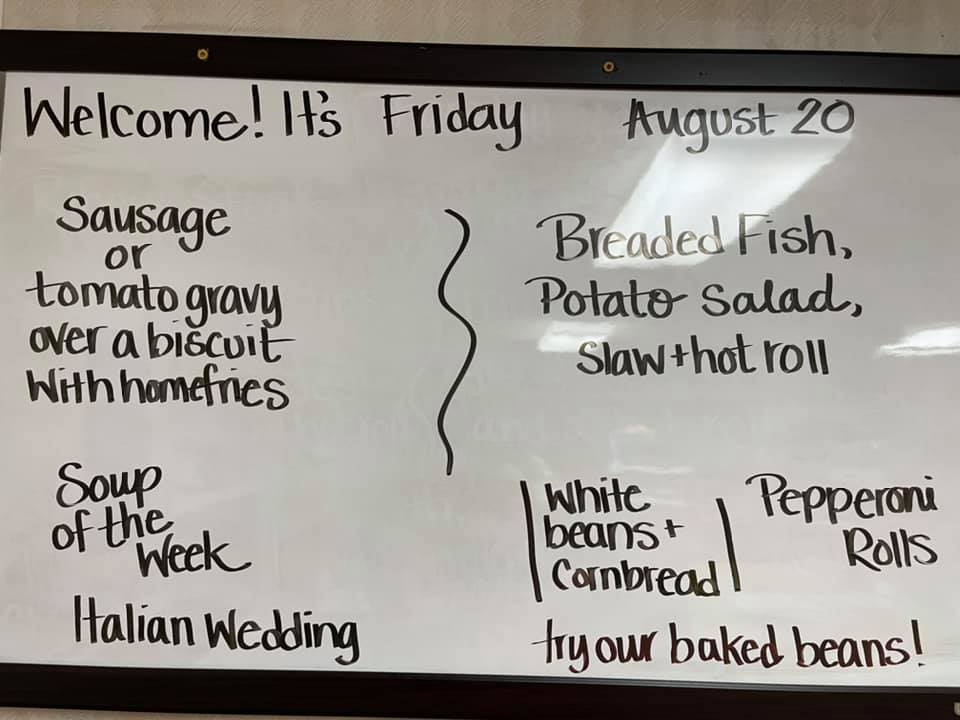 Welcome! It's Friday August 20
Sausage
or
tomato gravy
over a biscuit
With homefries
Breaded Fish,
Potato Salad,
Slaw + hot roll
Soup
of the
Week
Italian Wedding
White
beans +
Cornbread
Pepperoni
Rolls
try our baked beans!